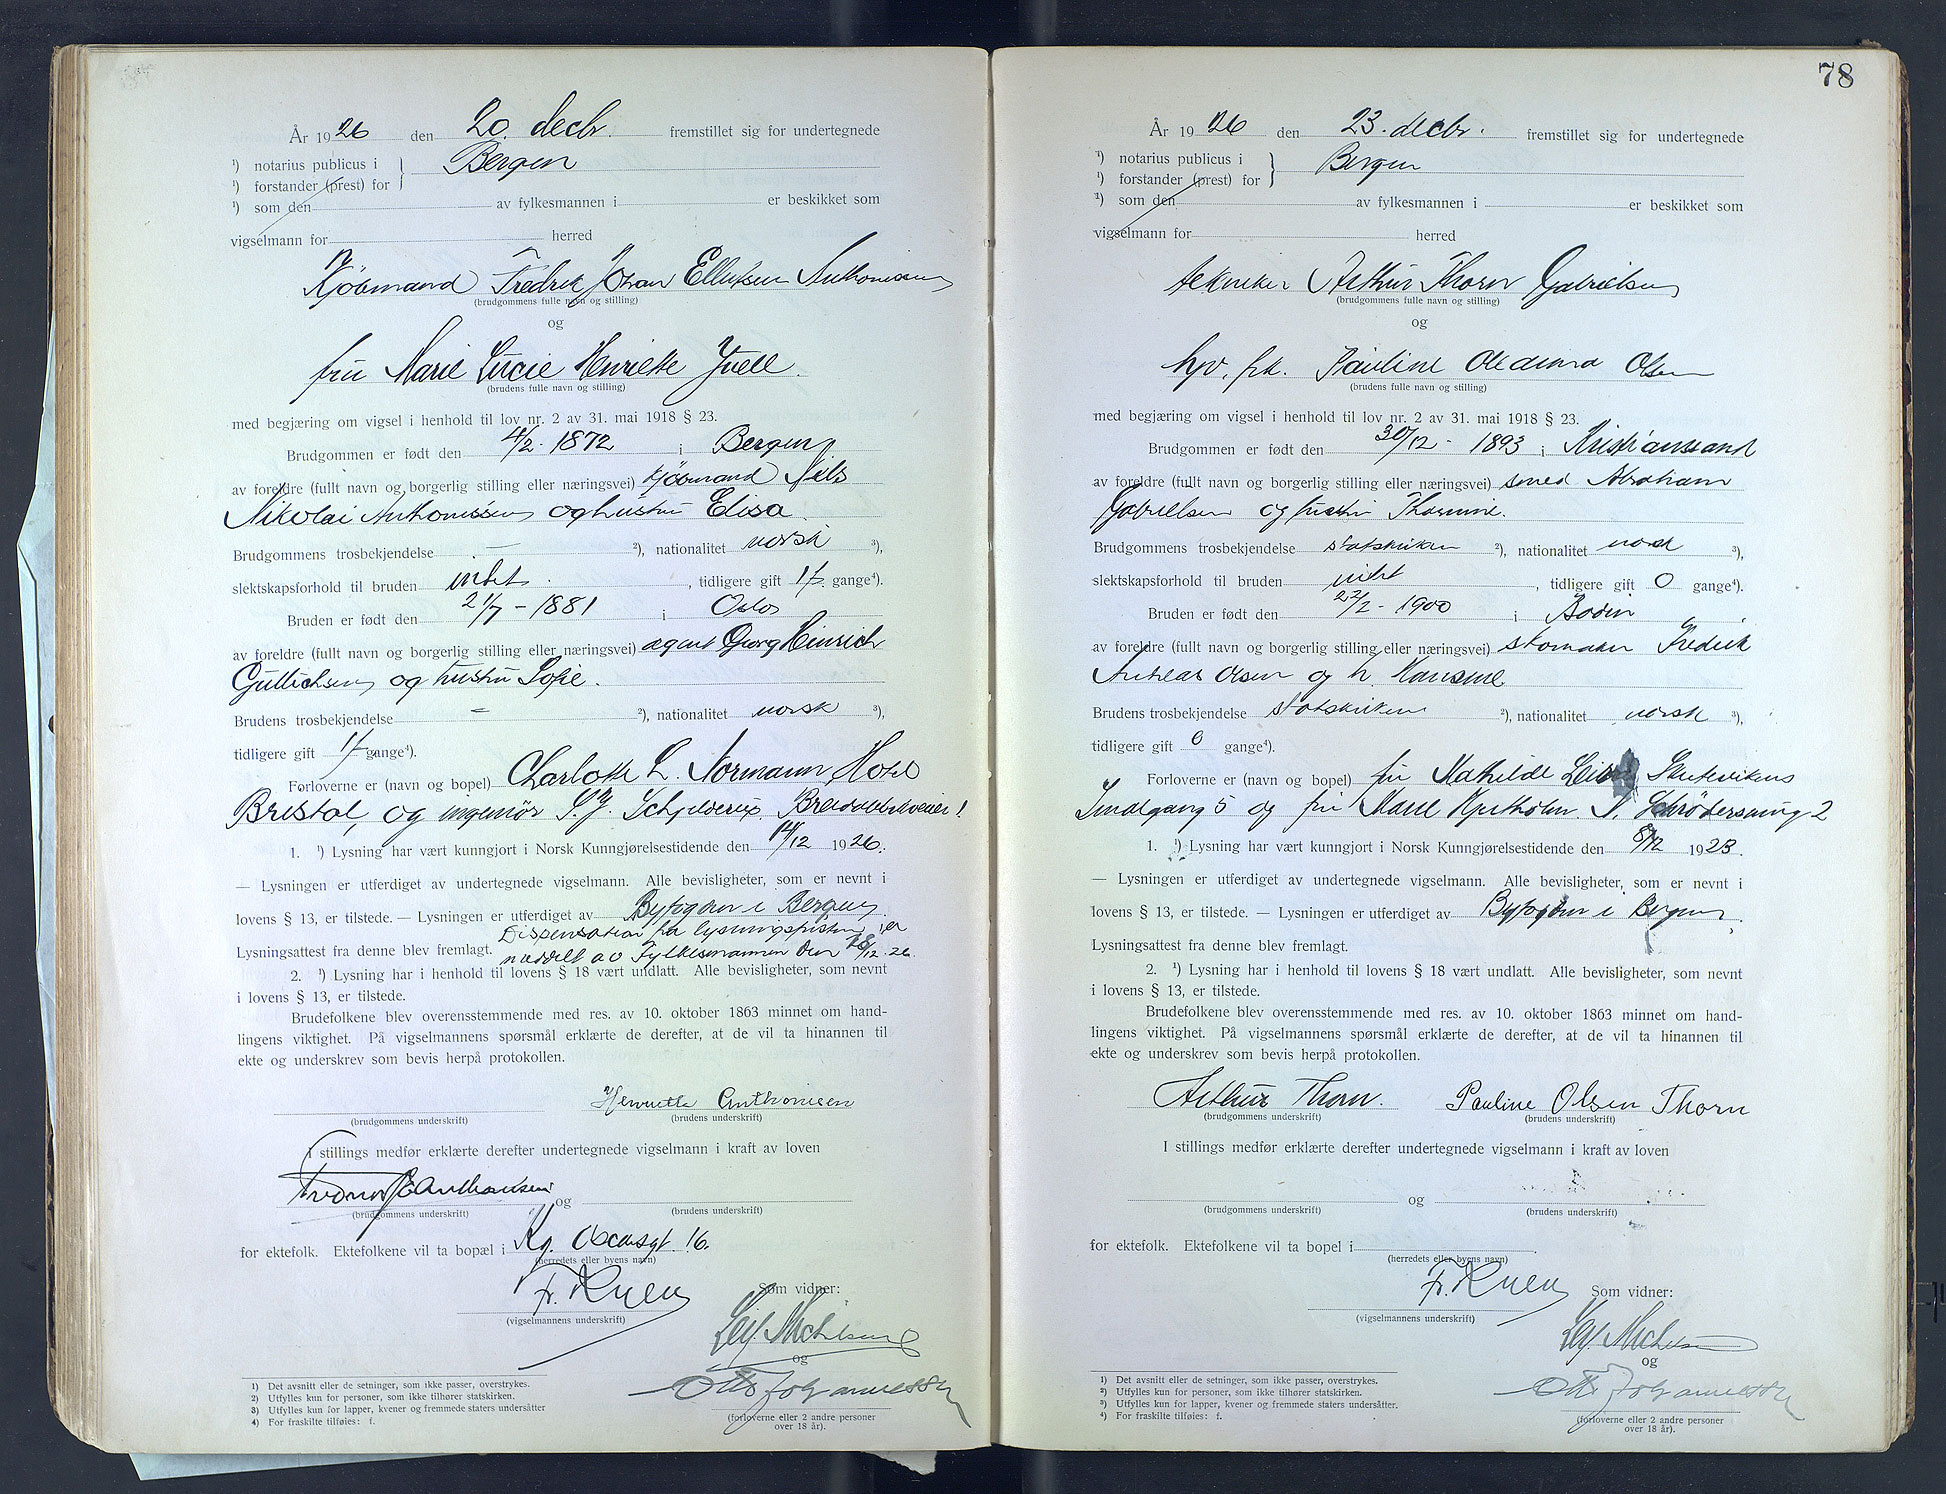 År 1926 den 20. decbr. fremstillet sig for undertegnede
¹) notarius publicus i } Bergen
¹) forstander (prest) for
¹) som den av fylkesmannen i er beskikket som
vigselmann for herred
Kjøbmand Fredrik Johan Ellertsen Anthonissen
(brudgommens fulle navn og stilling)
og
fru Marie Lucie Henriette Juell.
(brudens fulle navn og stilling)
med begjæring om vigsel i henhold til lov nr. 2 av 31. mai 1918 § 23.
Brudgommen er født den 4/2 - 1872 i Bergen
av foreldre (fullt navn og borgerlig stilling eller næringsvei) kjøbmand Nils
Nikolai Anthonissen og hustru Elisa.
Brudgommens trosbekjendelse — ²), nationalitet norsk ³),
slektskapsforhold til bruden intet, tidligere gift 1 f. gange⁴).
Bruden er født den 21/7 - 1881 i Oslo
av foreldre (fullt navn og borgerlig stilling eller næringsvei) agent Georg Hinrich
Gullichsen og hustru Sofie.
Brudens trosbekjendelse — ²), nationalitet norsk ³),
tidligere gift 1 f. gange⁴).
Forloverne er (navn og bopel) Charlotte L. Normann, Hotel
Bristol, og ingeniør Schjelderup,
1. ¹) Lysning har vært kunngjort i Norsk Kunngjørelsestidende den 14/12 1926.
— Lysningen er utferdiget av undertegnede vigselmann. Alle bevisligheter, som er nevnt i
lovens § 13, er tilstede. — Lysningen er utferdiget av Byfogden i Bergen.
Dispensation fra lysningsfristen er
Lysningsattest fra denne blev fremlagt. meddelt av Fylkesmannen den 18/12. 26.
2. ¹) Lysning har i henhold til lovens § 18 vært undlatt. Alle bevisligheter, som nevnt
i lovens § 13, er tilstede.
Brudefolkene blev overensstemmende med res. av 10. oktober 1863 minnet om hand-
lingens viktighet. På vigselmannens spørsmål erklærte de derefter, at de vil ta hinannen til
ekte og underskrev som bevis herpå protokollen.
Henriette Anthonisen
(brudgommens underskrift) (brudens underskrift)
I stillings medfør erklærte derefter undertegnede vigselmann i kraft av loven
Anthonisen og
(brudgommens underskrift) (brudens underskrift)
for ektefolk. Ektefolkene vil ta bopæl i Kg. Oscarsgt. 16.
(herredets eller byens navn)
Fr. Knen
(vigselmannens underskrift)
Som vidner:
Leif Michelsen
og
Otto Johannessen
(forloverne eller 2 andre personer
over 18 år).
1) Det avsnitt eller de setninger, som ikke passer, overstrykes.
2) Utfylles kun for personer, som ikke tilhører statskirken.
3) Utfylles kun for lapper, kvener og fremmede staters undersåtter
4) For fraskilte tilføies: f.
78
År 1926 den 23. decbr. fremstillet sig for undertegnede
¹) notarius publicus i } Bergen
¹) forstander (prest) for
¹) som den av fylkesmannen i er beskikket som
vigselmann for herred
tekniker Arthur Thorn Gabrielsen
(brudgommens fulle navn og stilling)
og
hjv. frk. Pauline Olsen
(brudens fulle navn og stilling)
med begjæring om vigsel i henhold til lov nr. 2 av 31. mai 1918 § 23.
Brudgommen er født den 30/12 - 1893 i Kristianssand
av foreldre (fullt navn og borgerlig stilling eller næringsvei) smed Abraham
Gabrielsen og hustru Thomine.
Brudgommens trosbekjendelse statskirken ²), nationalitet norsk ³),
slektskapsforhold til bruden intet, tidligere gift 0 gange⁴).
Bruden er født den 22/2 - 1900 i Bodin
av foreldre (fullt navn og borgerlig stilling eller næringsvei) skomaker Fredrik
Andreas Olsen og h. Hansine
Brudens trosbekjendelse statskirken ²), nationalitet norsk ³),
tidligere gift 0 gange⁴).
Forloverne er (navn og bopel) fru Mathilde Skutevikens
Smalgang 5 og fru Marie N. Schrødersmug 2
1. ¹) Lysning har vært kunngjort i Norsk Kunngjørelsestidende den 8/12 1923.
— Lysningen er utferdiget av undertegnede vigselmann. Alle bevisligheter, som er nevnt i
lovens § 13, er tilstede. — Lysningen er utferdiget av Byfogden i Bergen.
Lysningsattest fra denne blev fremlagt.
2. ¹) Lysning har i henhold til lovens § 18 vært undlatt. Alle bevisligheter, som nevnt
i lovens § 13, er tilstede.
Brudefolkene blev overensstemmende med res. av 10. oktober 1863 minnet om hand-
lingens viktighet. På vigselmannens spørsmål erklærte de derefter, at de vil ta hinannen til
ekte og underskrev som bevis herpå protokollen.
Arthur Thorn. Pauline Olsen Thorn
(brudgommens underskrift) (brudens underskrift)
I stillings medfør erklærte derefter undertegnede vigselmann i kraft av loven
og
(brudgommens underskrift) (brudens underskrift)
for ektefolk. Ektefolkene vil ta bopel i .
(herredets eller byens navn)
Fr. Knen
(vigselmannens underskrift)
Som vidner:
Leif Michelsen
og
Otto Johannessen
(forloverne eller 2 andre personer
over 18 år).
1) Det avsnitt eller de setninger, som ikke passer, overstrykes.
2) Utfylles kun for personer, som ikke tilhører statskirken.
3) Utfylles kun for lapper, kvener og fremmede staters undersåtter.
4) For fraskilte tilføies: f.